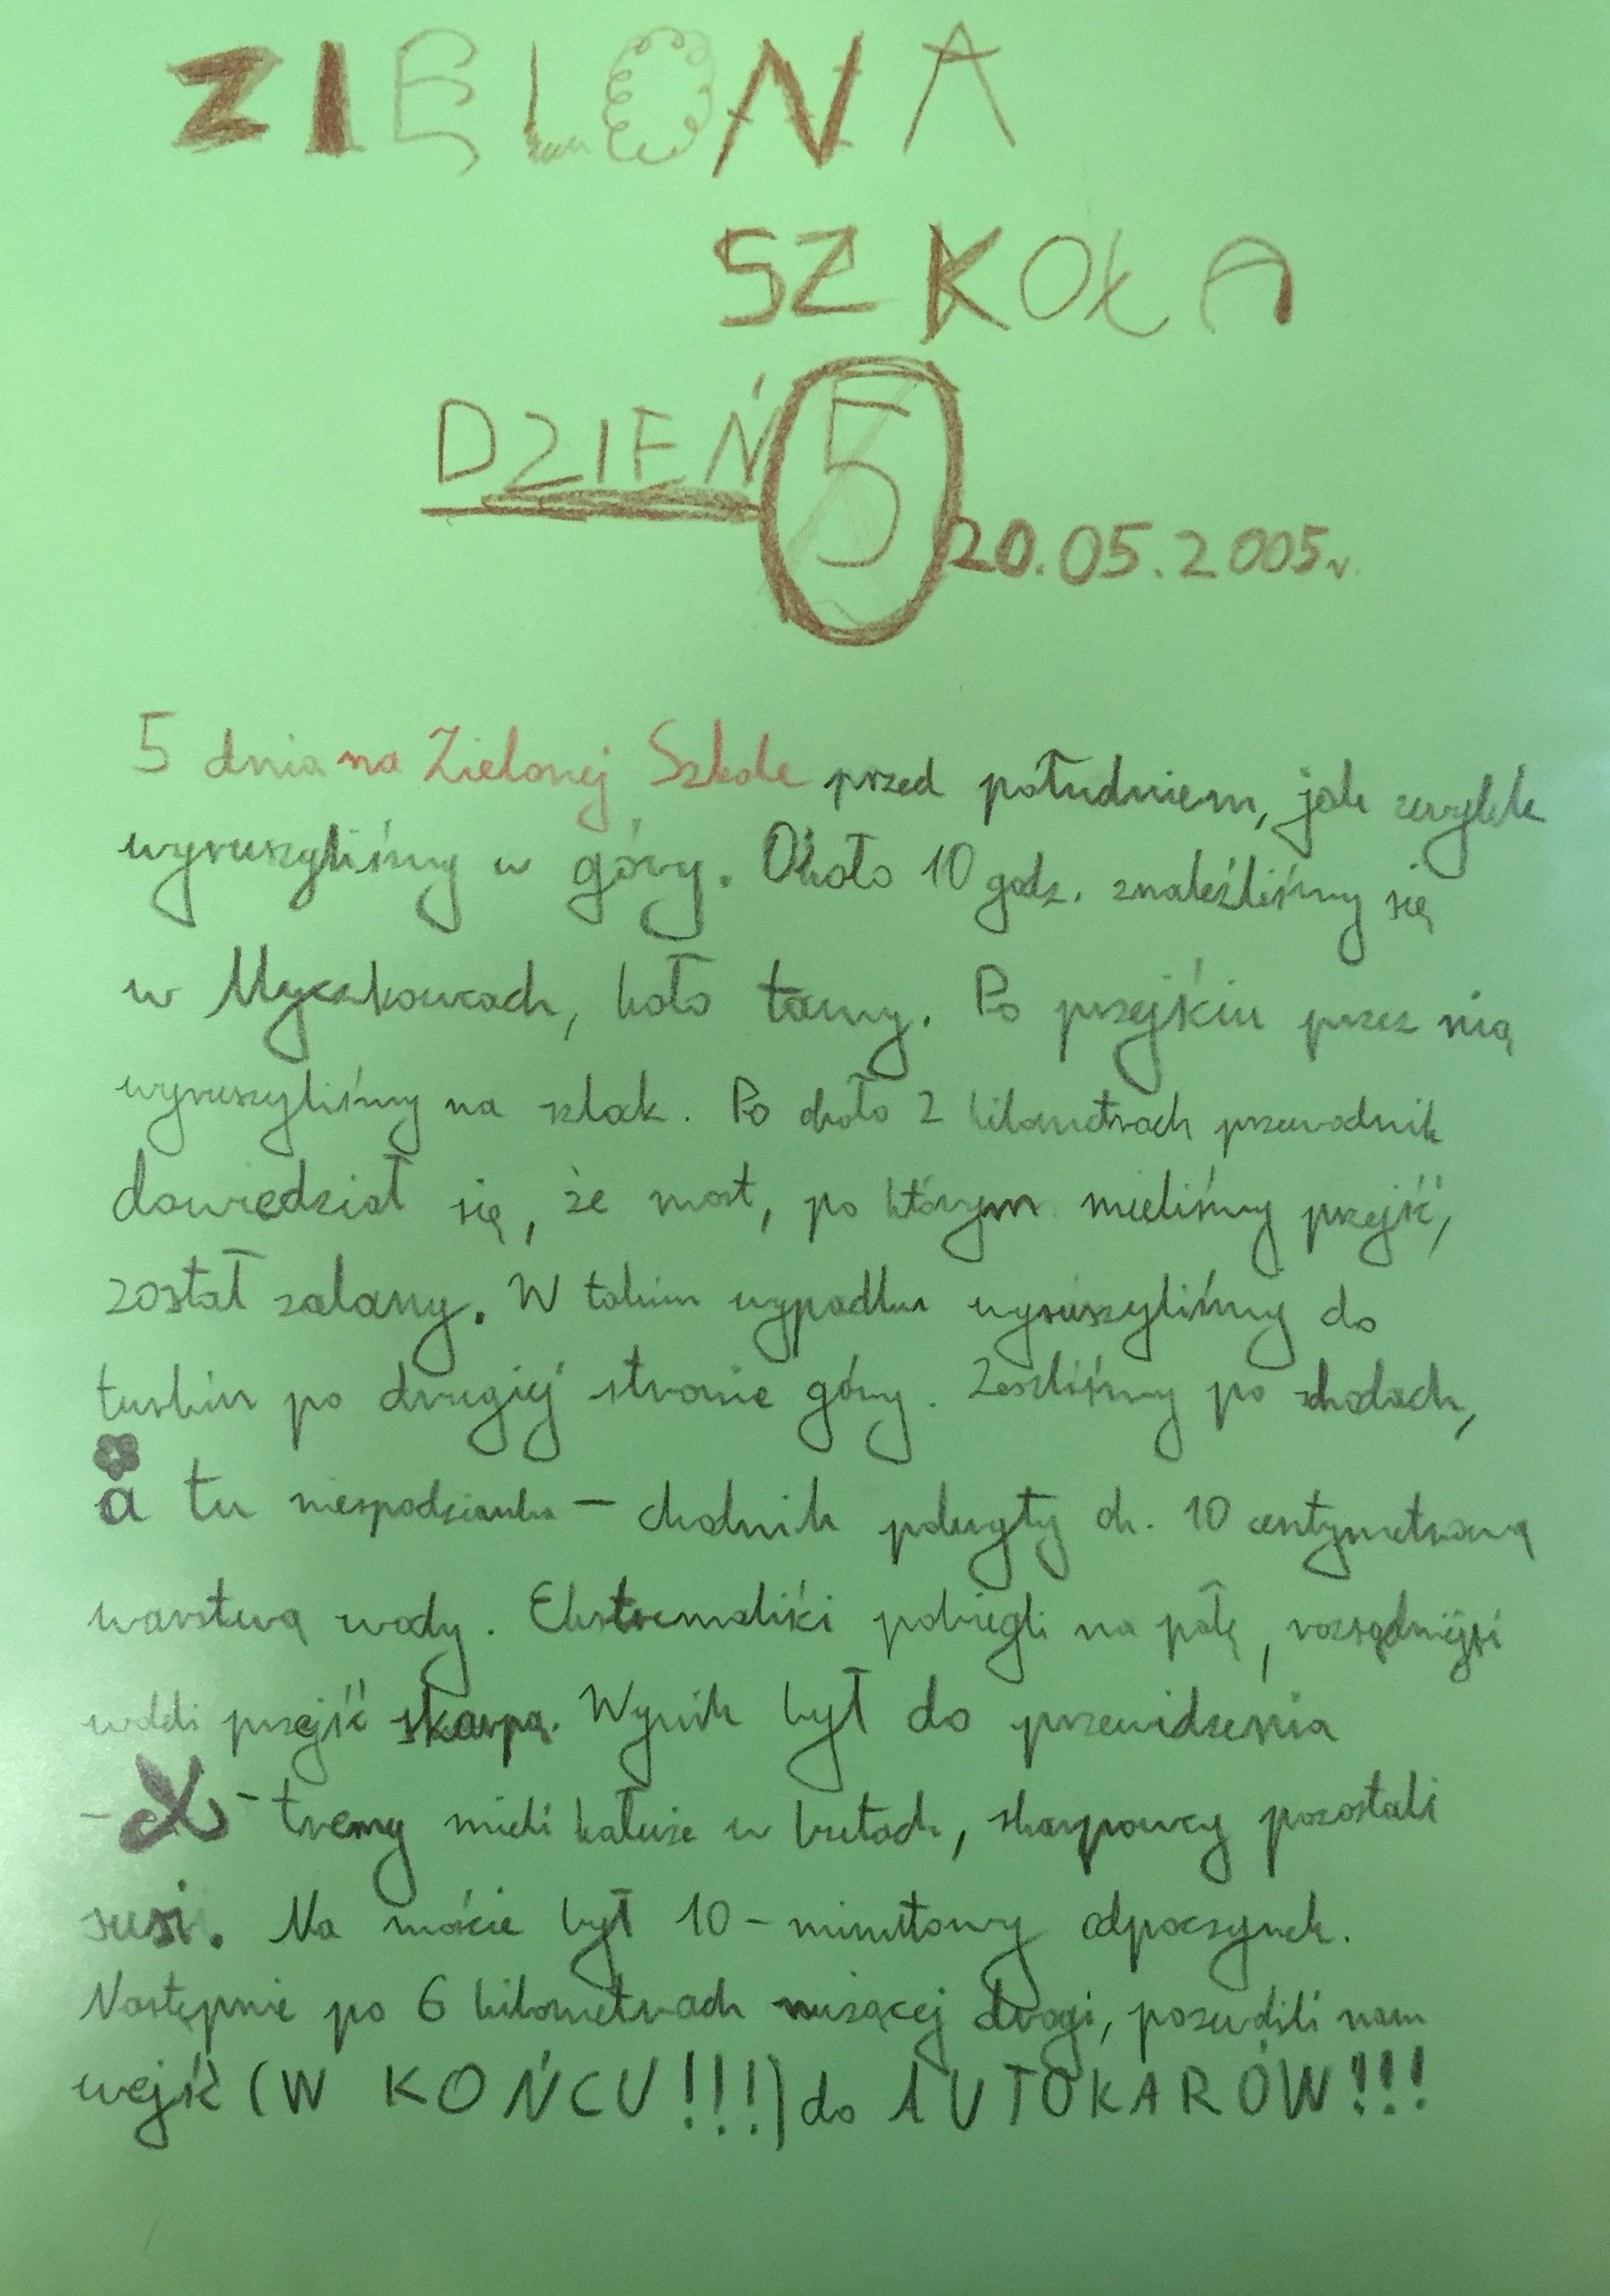 ZIELONA
SZKOŁA
DZIEŃ 5 20.05.2005r.
5 dnia na Zielonej Szkole przed południem, jak zwykle
wyruszyliśmy w góry. Około 10 godz. znaleźliśmy się
w Myczkowcach, koło tamy. Po przejściu przez nią
wyruszyliśmy na szlak. Po około 2 kilometrach przewodnik
dowiedział się, że most, po którym mieliśmy przejść,
został zalany. W takim wypadku wyruszyliśmy do
turbin po drugiej stronie góry. Zeszliśmy po schodach,
a tu niespodzianka - chodnik pokryty ok. 10 centymetrową
warstwą wody. Ekstremaliki pobiegli na pałę, rozsądniejsi
woleli przejść skarpą. Wynik był do przewidzenia
- X - tremy mieli kałuże w butach, skarpowcy pozostali
susi. Na moście był 10-minutowy odpoczynek.
Następnie po 6 kilometrach nużącej drogi, pozwolili nam
wejść (W KOŃCU!!!) do AUTOKARÓW!!!